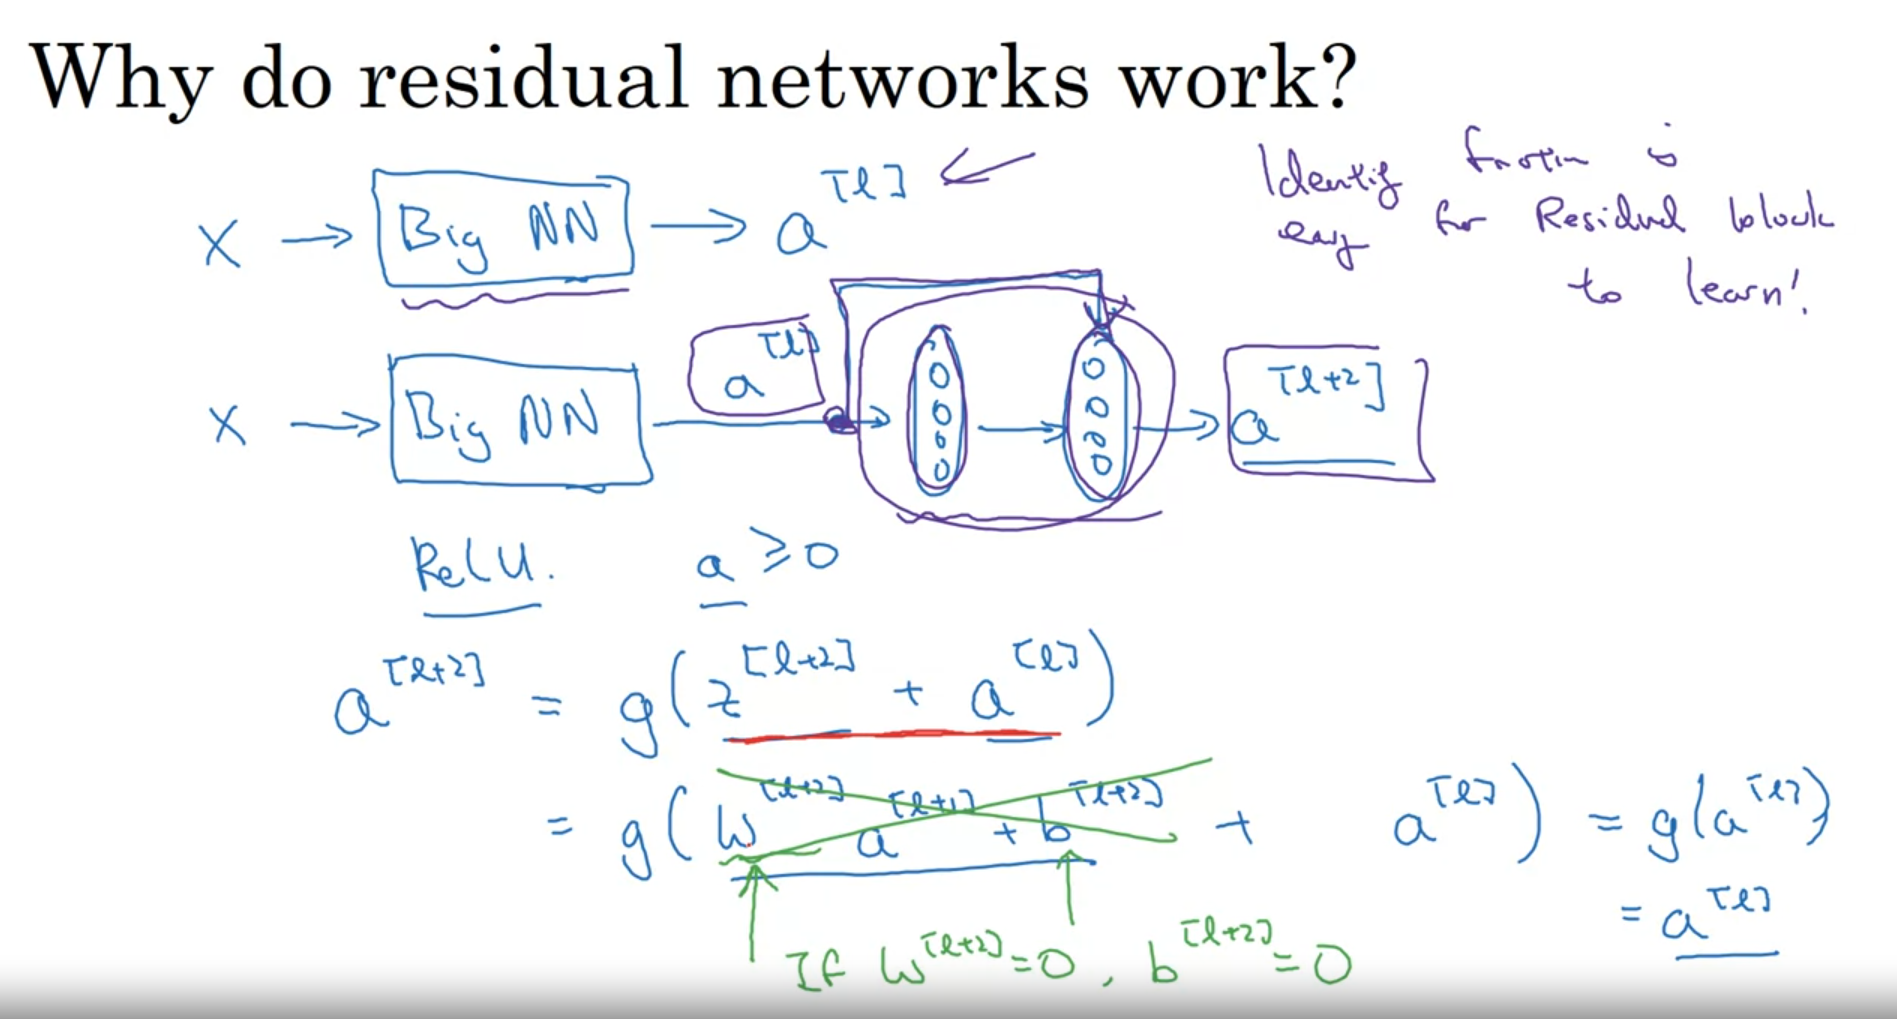 Why do residual networks work?
X → Big NN → a^[l]
Identity function is
easy for Residual block
to learn!
X → Big NN a^[l] → → → a^[l+2]
ReLU. a ≥ 0
a^[l+2] = g(z^[l+2] + a^[l])
= g(W^[l+2] a^[l+1] + b^[l+2] + a^[l]) = g(a^[l])
= a^[l]
If W^[l+2] = 0, b^[l+2] = 0